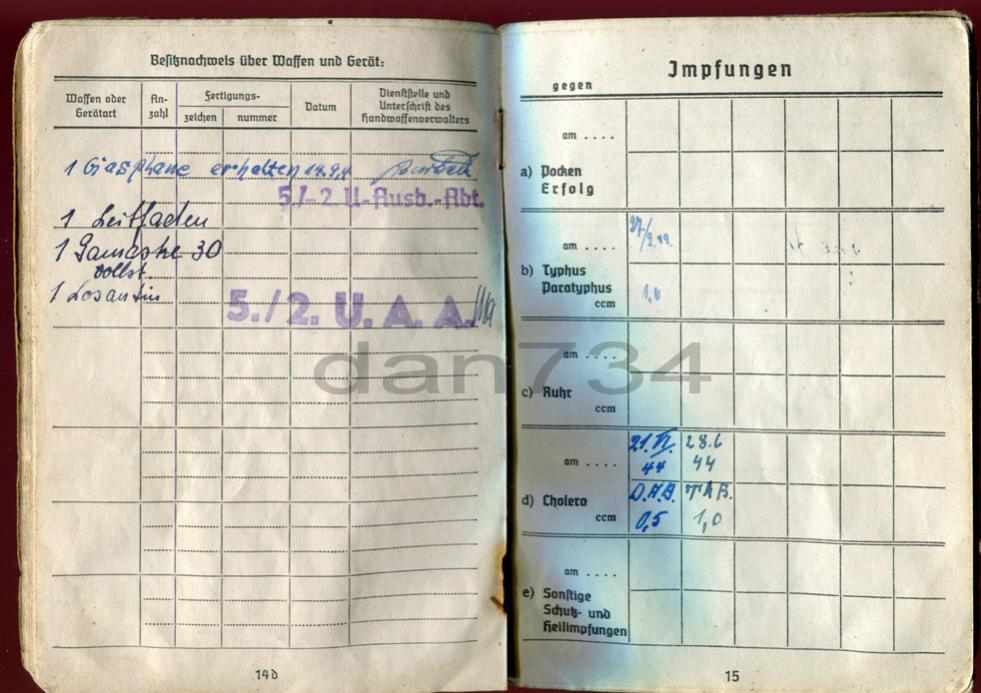 Besitznachweis über Waffen und Gerät:
Waffen oder Gerätart
An-zahl
Fertigungs-
zeichen nummer
Datum
Dienststelle und Unterschrift des Handwaffenverwalters
1 Gasplane erhalten
5./-2. U.-Ausb.-Abt.
1 Leitfaden
1 Gasmaske 30
vollst.
1 Losantin
5./2. U. A. A.
14d
Impfungen
gegen
am ....
a) Pocken
Erfolg
am ....
b) Typhus
Paratyphus
ccm 1,0
am ....
c) Ruhr
ccm
21. VI. 28.6
am .... 44 44
d) Cholera T.A.B.
ccm 0,5 1,0
am ....
e) Sonstige
Schutz- und
Heilimpfungen
15
dan734